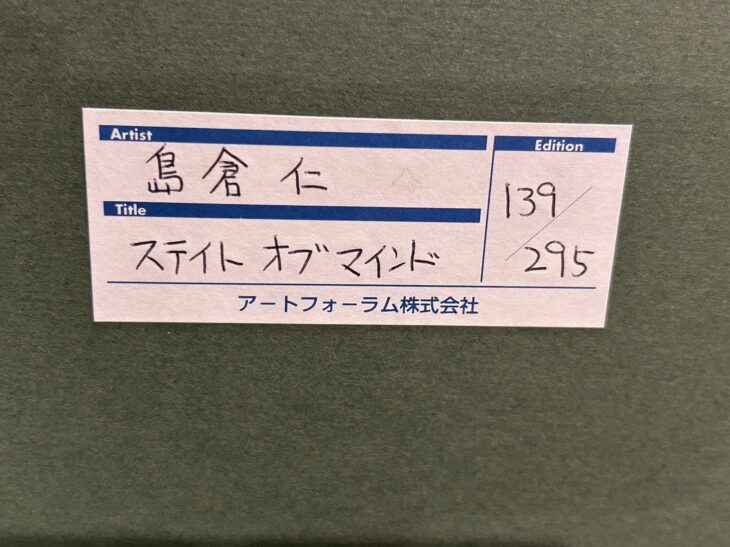 Artist
島倉 仁
Title
ステイト オブ マインド
Edition
139/295
アートフォーラム株式会社